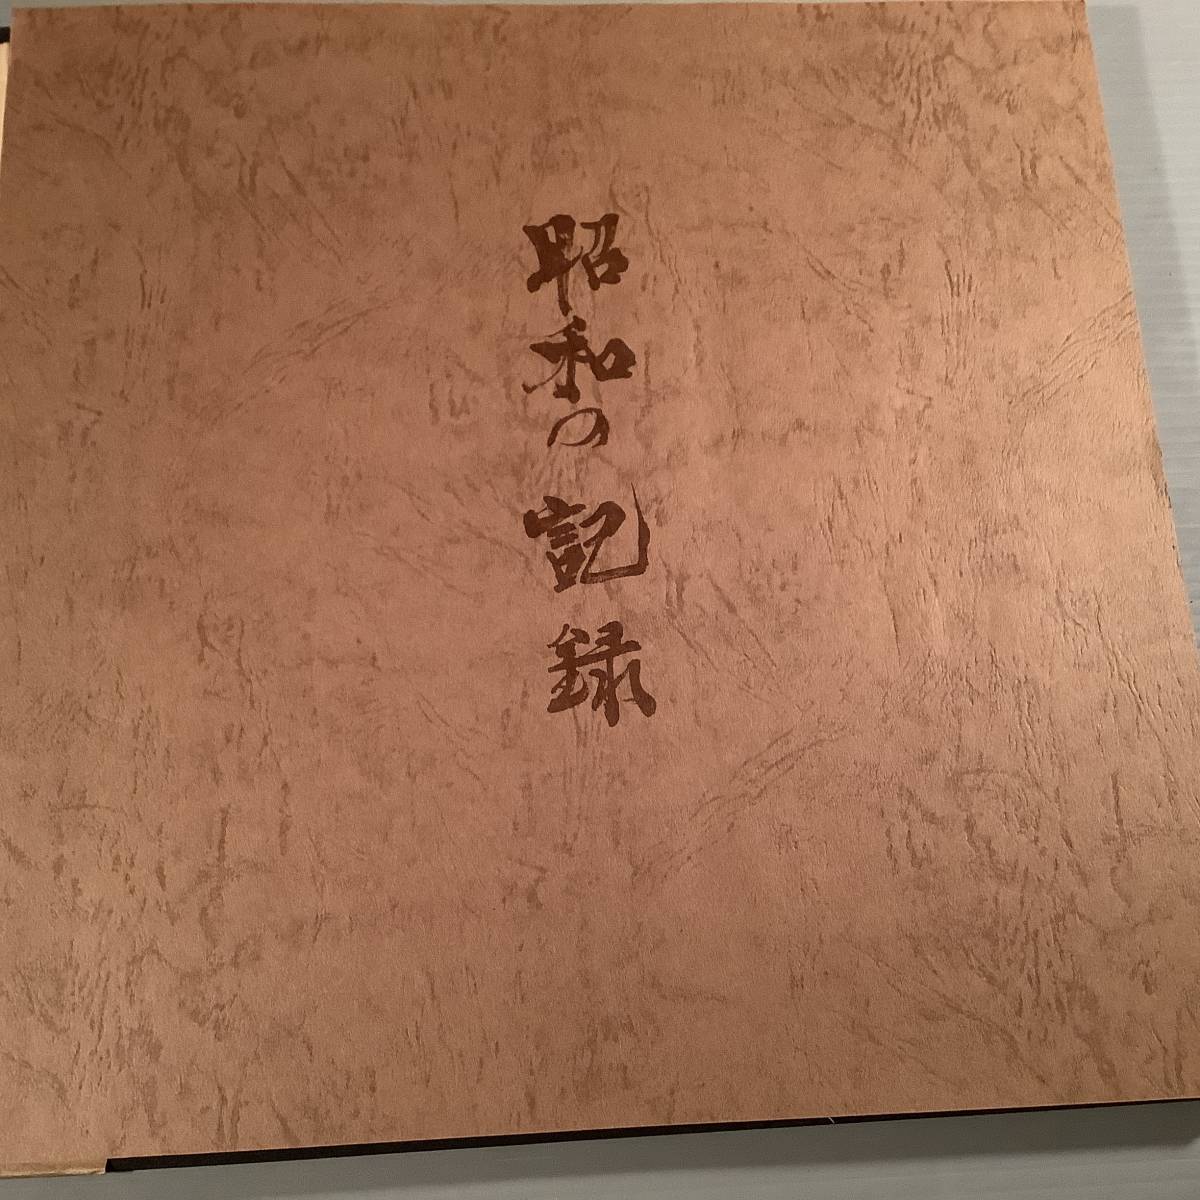 昭和の記録